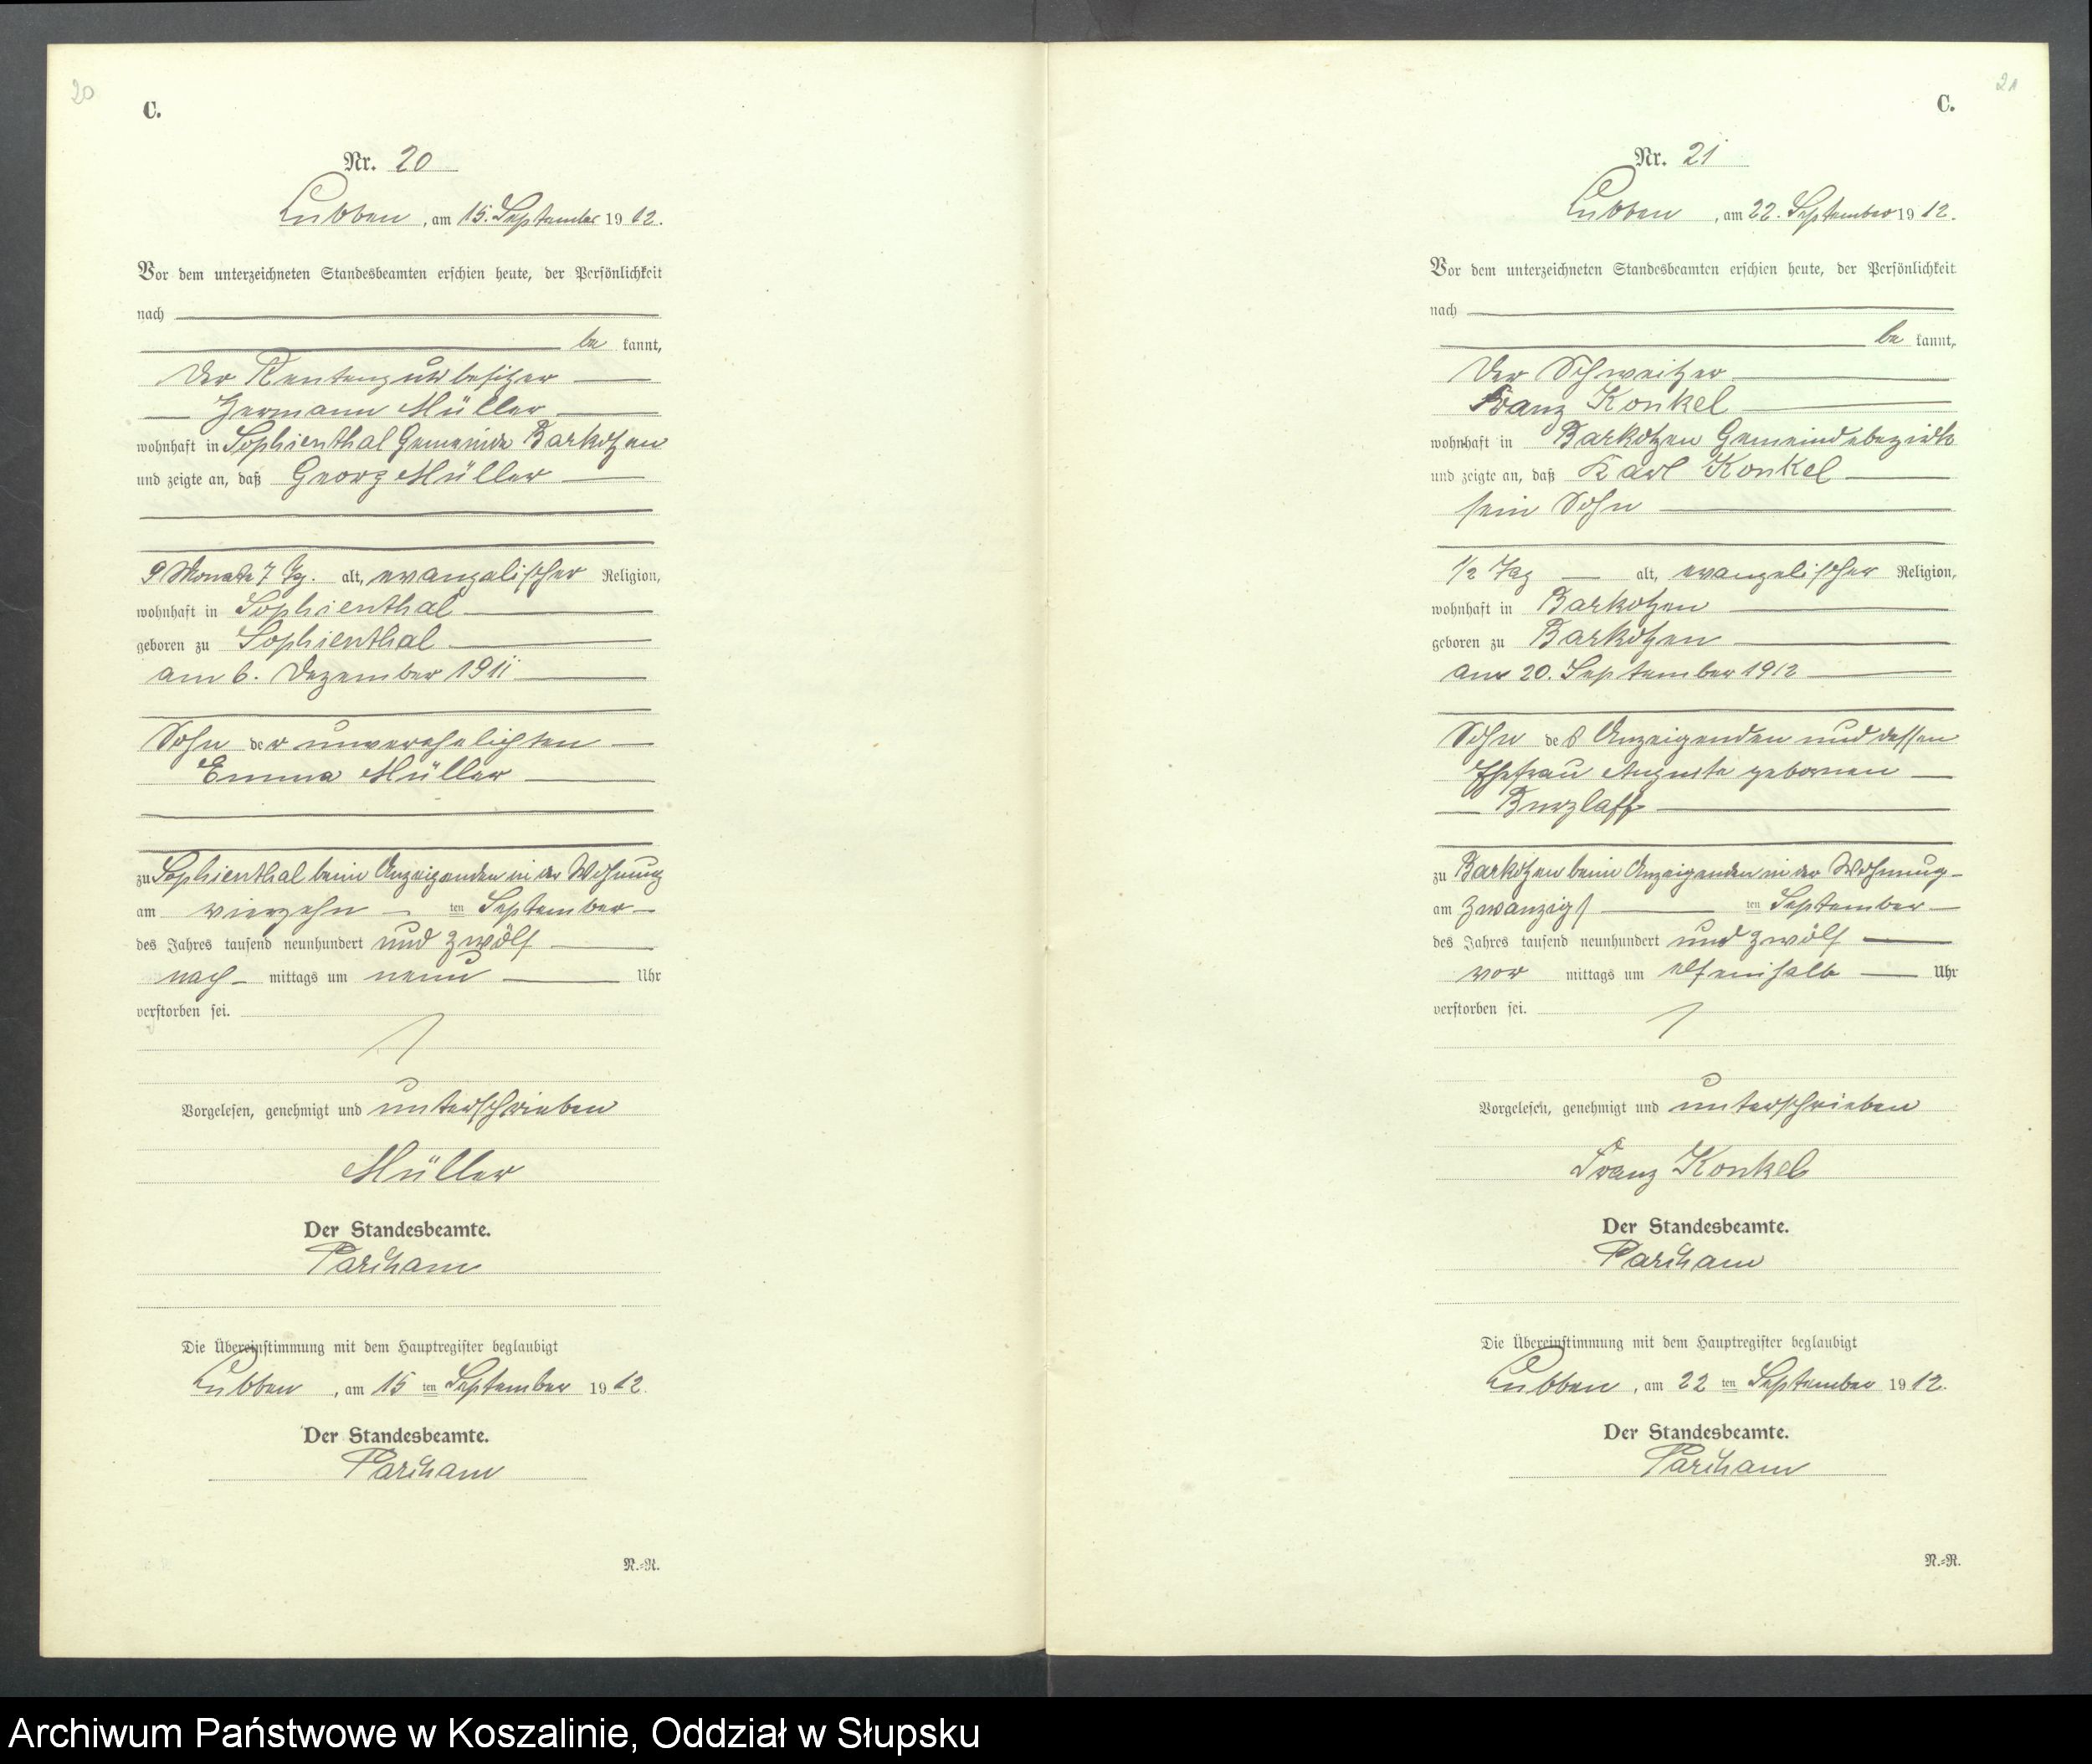 20
C.
Nr. 20
Lübben, am 15. September 1912.
Vor dem unterzeichneten Standesbeamten erschien heute, der Persönlichkeit
nach
be kannt,
der Rentengutsbesitzer
Hermann Müller
wohnhaft in Sophienthal Gemeinde Barkotzen
und zeigte an, daß Georg Müller
9 Monate 7 Tg. alt, evangelischer Religion,
wohnhaft in Sophienthal
geboren zu Sophienthal
am 6. Dezember 1911
Sohn der unverehelichten
Emma Müller
zu Sophienthal beim Anzeigenden in der Wohnung
am vierzehn ten September
des Jahres tausend neunhundert und zwölf
nach mittags um neun Uhr
verstorben sei.
Vorgelesen, genehmigt und unterschrieben
Müller
Der Standesbeamte.
Parcham
Die Übereinstimmung mit dem Hauptregister beglaubigt
Lübben, am 15 ten September 1912.
Der Standesbeamte.
Parcham
N.=R.
21
C.
Nr. 21
Lübben, am 22. September 1912.
Vor dem unterzeichneten Standesbeamten erschien heute, der Persönlichkeit
nach
be kannt,
der Schweitzer
Franz Konkel
wohnhaft in Barkotzen Gemeindebezirk
und zeigte an, daß Karl Konkel
sein Sohn
1/2 Tag alt, evangelischer Religion,
wohnhaft in Barkotzen
geboren zu Barkotzen
am 20. September 1912
Sohn des Anzeigenden und dessen
Ehefrau Auguste gebornen
Burzlaff
zu Barkotzen beim Anzeigenden in der Wohnung
am zwanzigs ten September
des Jahres tausend neunhundert und zwölf
vor mittags um elfeinhalb Uhr
verstorben sei.
Vorgelesen, genehmigt und unterschrieben
Franz Konkel
Der Standesbeamte.
Parcham
Die Übereinstimmung mit dem Hauptregister beglaubigt
Lübben, am 22 ten September 1912.
Der Standesbeamte.
Parcham
N.=R.
Archiwum Państwowe w Koszalinie, Oddział w Słupsku